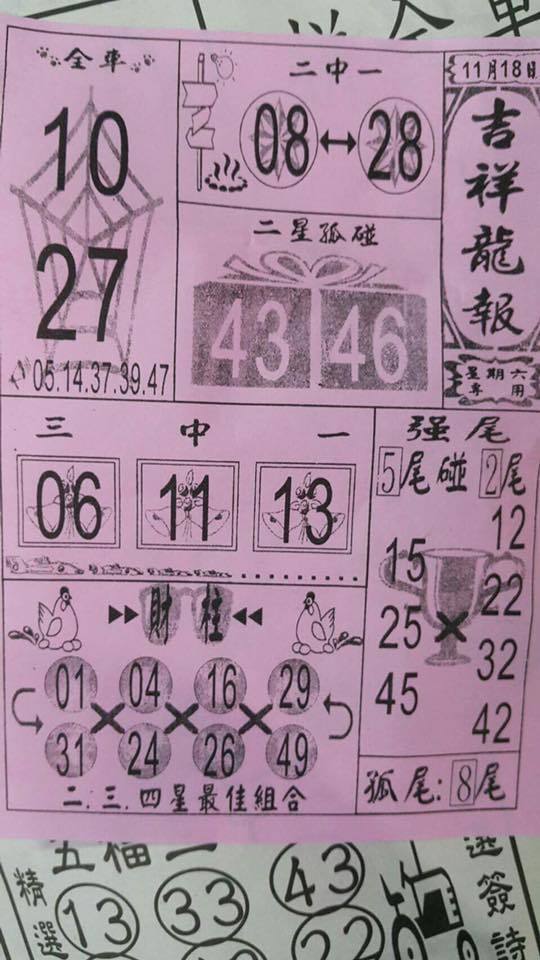 全車
10
27
05.14.37.39.47
二中一
08↔28
二星孤碰
43 46
11月18日
吉祥龍報
星期六
專用
三中一
06 11 13
强尾
5尾碰2尾
15 12
25 × 22
45 32
42
▶▶財柱◀◀
01 04 16 29
× × ×
31 24 26 49
二.三.四星最佳組合
孤尾:8尾
五福二
精選
13 33 43
22
籤詩